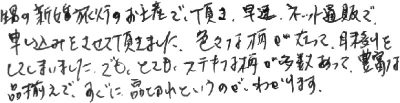 甥の新婚旅行のお土産で頂き、早速、ネット通販で
申し込みをさせて頂きました。色々な柄が在って、目移りを
してしまいました。でも、とても、ステキな柄が多数あって、豊富な
品揃えで、すぐに品切れというのが、わかります。